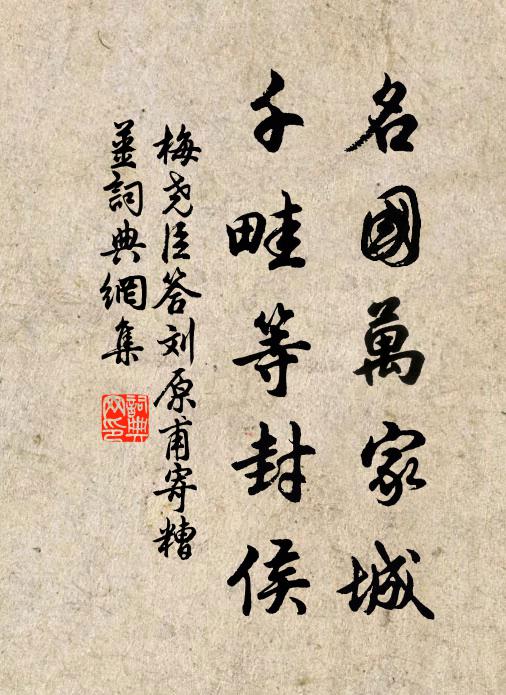 名國萬家城
千畦等封侯
梅尧臣答刘原甫寄糟
薑詞典網集
詞典
网印